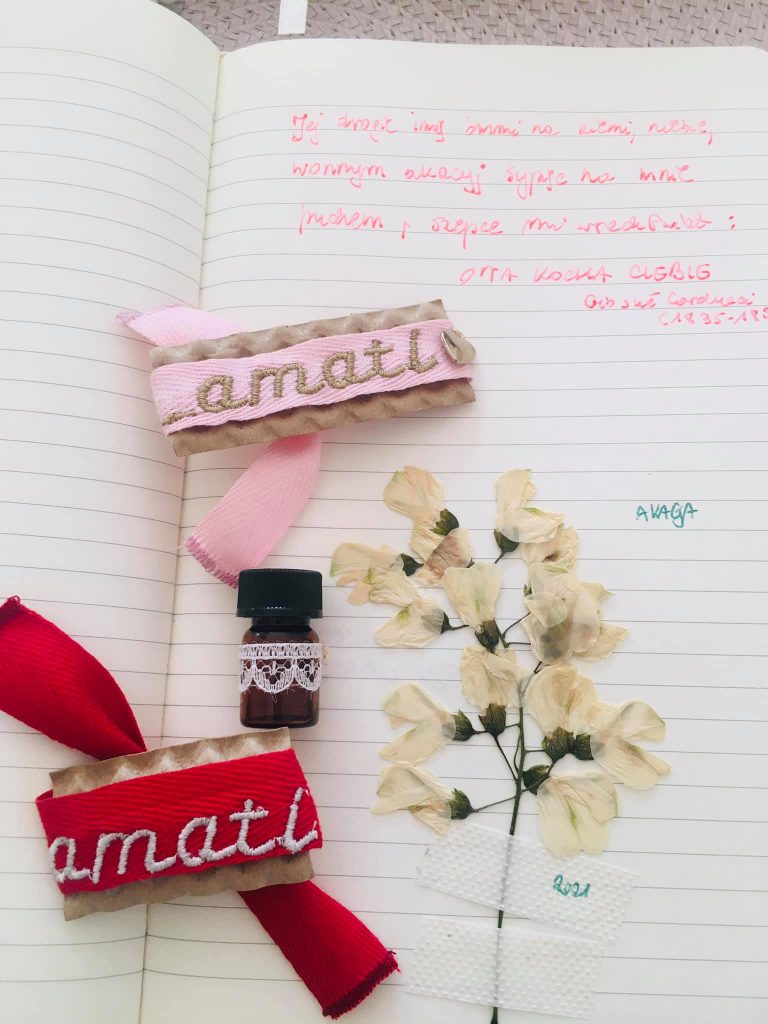 Jej drogie imię brzmi na ziemi, niebie,
wonnym akacyj sypiąc na mnie
puchem, szepce mi :
ONA KOCHA CIEBIE
Giosuè Carducci
(1835-
amati
AKACJA
amati
2021